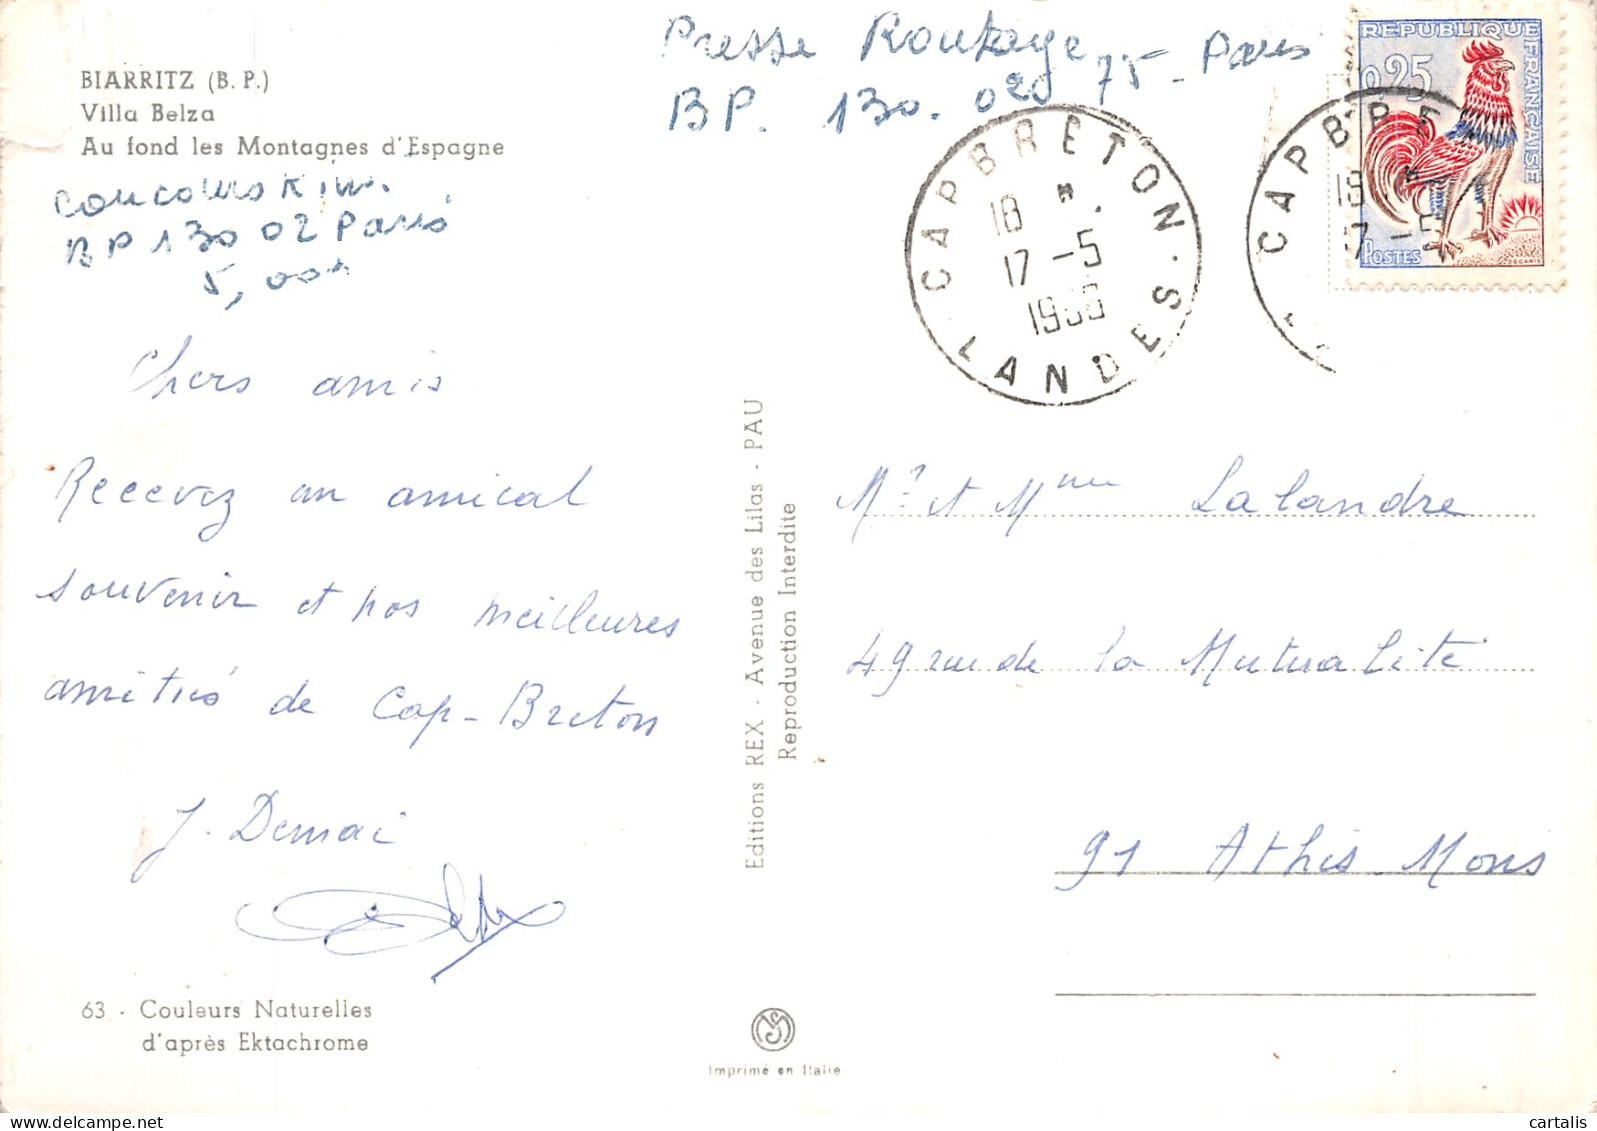 BIARRITZ (B. P.)
Villa Belza
Au fond les Montagnes d'Espagne
concours
BP 130 02 Paris
Presse Routage 75 - Paris
BP. 130. 020
CAPBRETON
18 H.
17 - 5
LANDES.
REPUBLIQUE FRANÇAISE
0,25
POSTES
DECARIS
CAPBRE
18 H
17 - 5
Chers amis
Recevez un amical
souvenir et nos meilleures
amitiés de Cap-Breton
J. Demai
63 - Couleurs Naturelles
d'après Ektachrome
Editions REX - Avenue des Lilas - PAU
Reproduction Interdite
Imprimé en Italie
Mr et Mme Lalandre
49 rue de la Mutualité
91 Athis Mons
cartalis